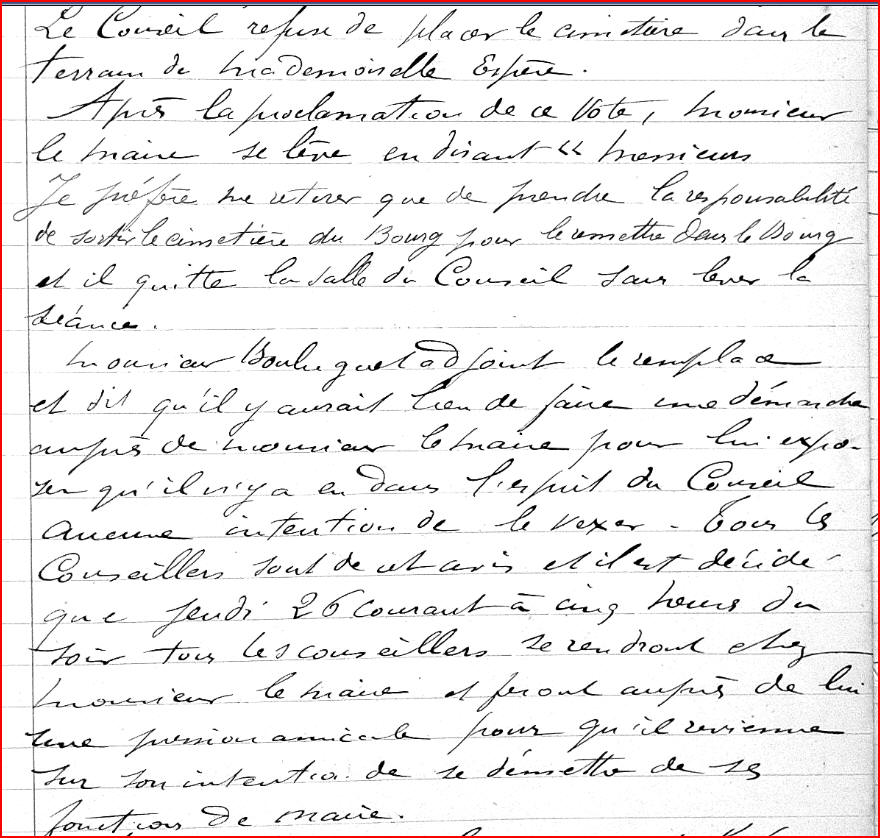 Le Conseil refuse de placer le cimetière dans le
terrain de Mademoiselle Espère.
Après la proclamation de ce Vote, Monsieur
le Maire se lève en disant « Messieurs
Je préfère me retirer que de prendre la responsabilité
de sortir le cimetière du Bourg pour le remettre dans le Bourg
et il quitte la salle du Conseil sans lever la
séance.
Monsieur adjoint le remplace
et dit qu'il y aurait lieu de faire une démarche
auprès de Monsieur le Maire pour lui expo-
ser qu'il n'y a eu dans l'esprit du Conseil
Aucune intention de le vexer - Tous les
Conseillers sont de cet avis et il est décidé
que jeudi 26 courant à cinq heures du
soir tous les conseillers se rendront chez
Monsieur le Maire et feront auprès de lui
une pression amicale pour qu'il revienne
sur son intention de se démettre de ses
fonctions de Maire.